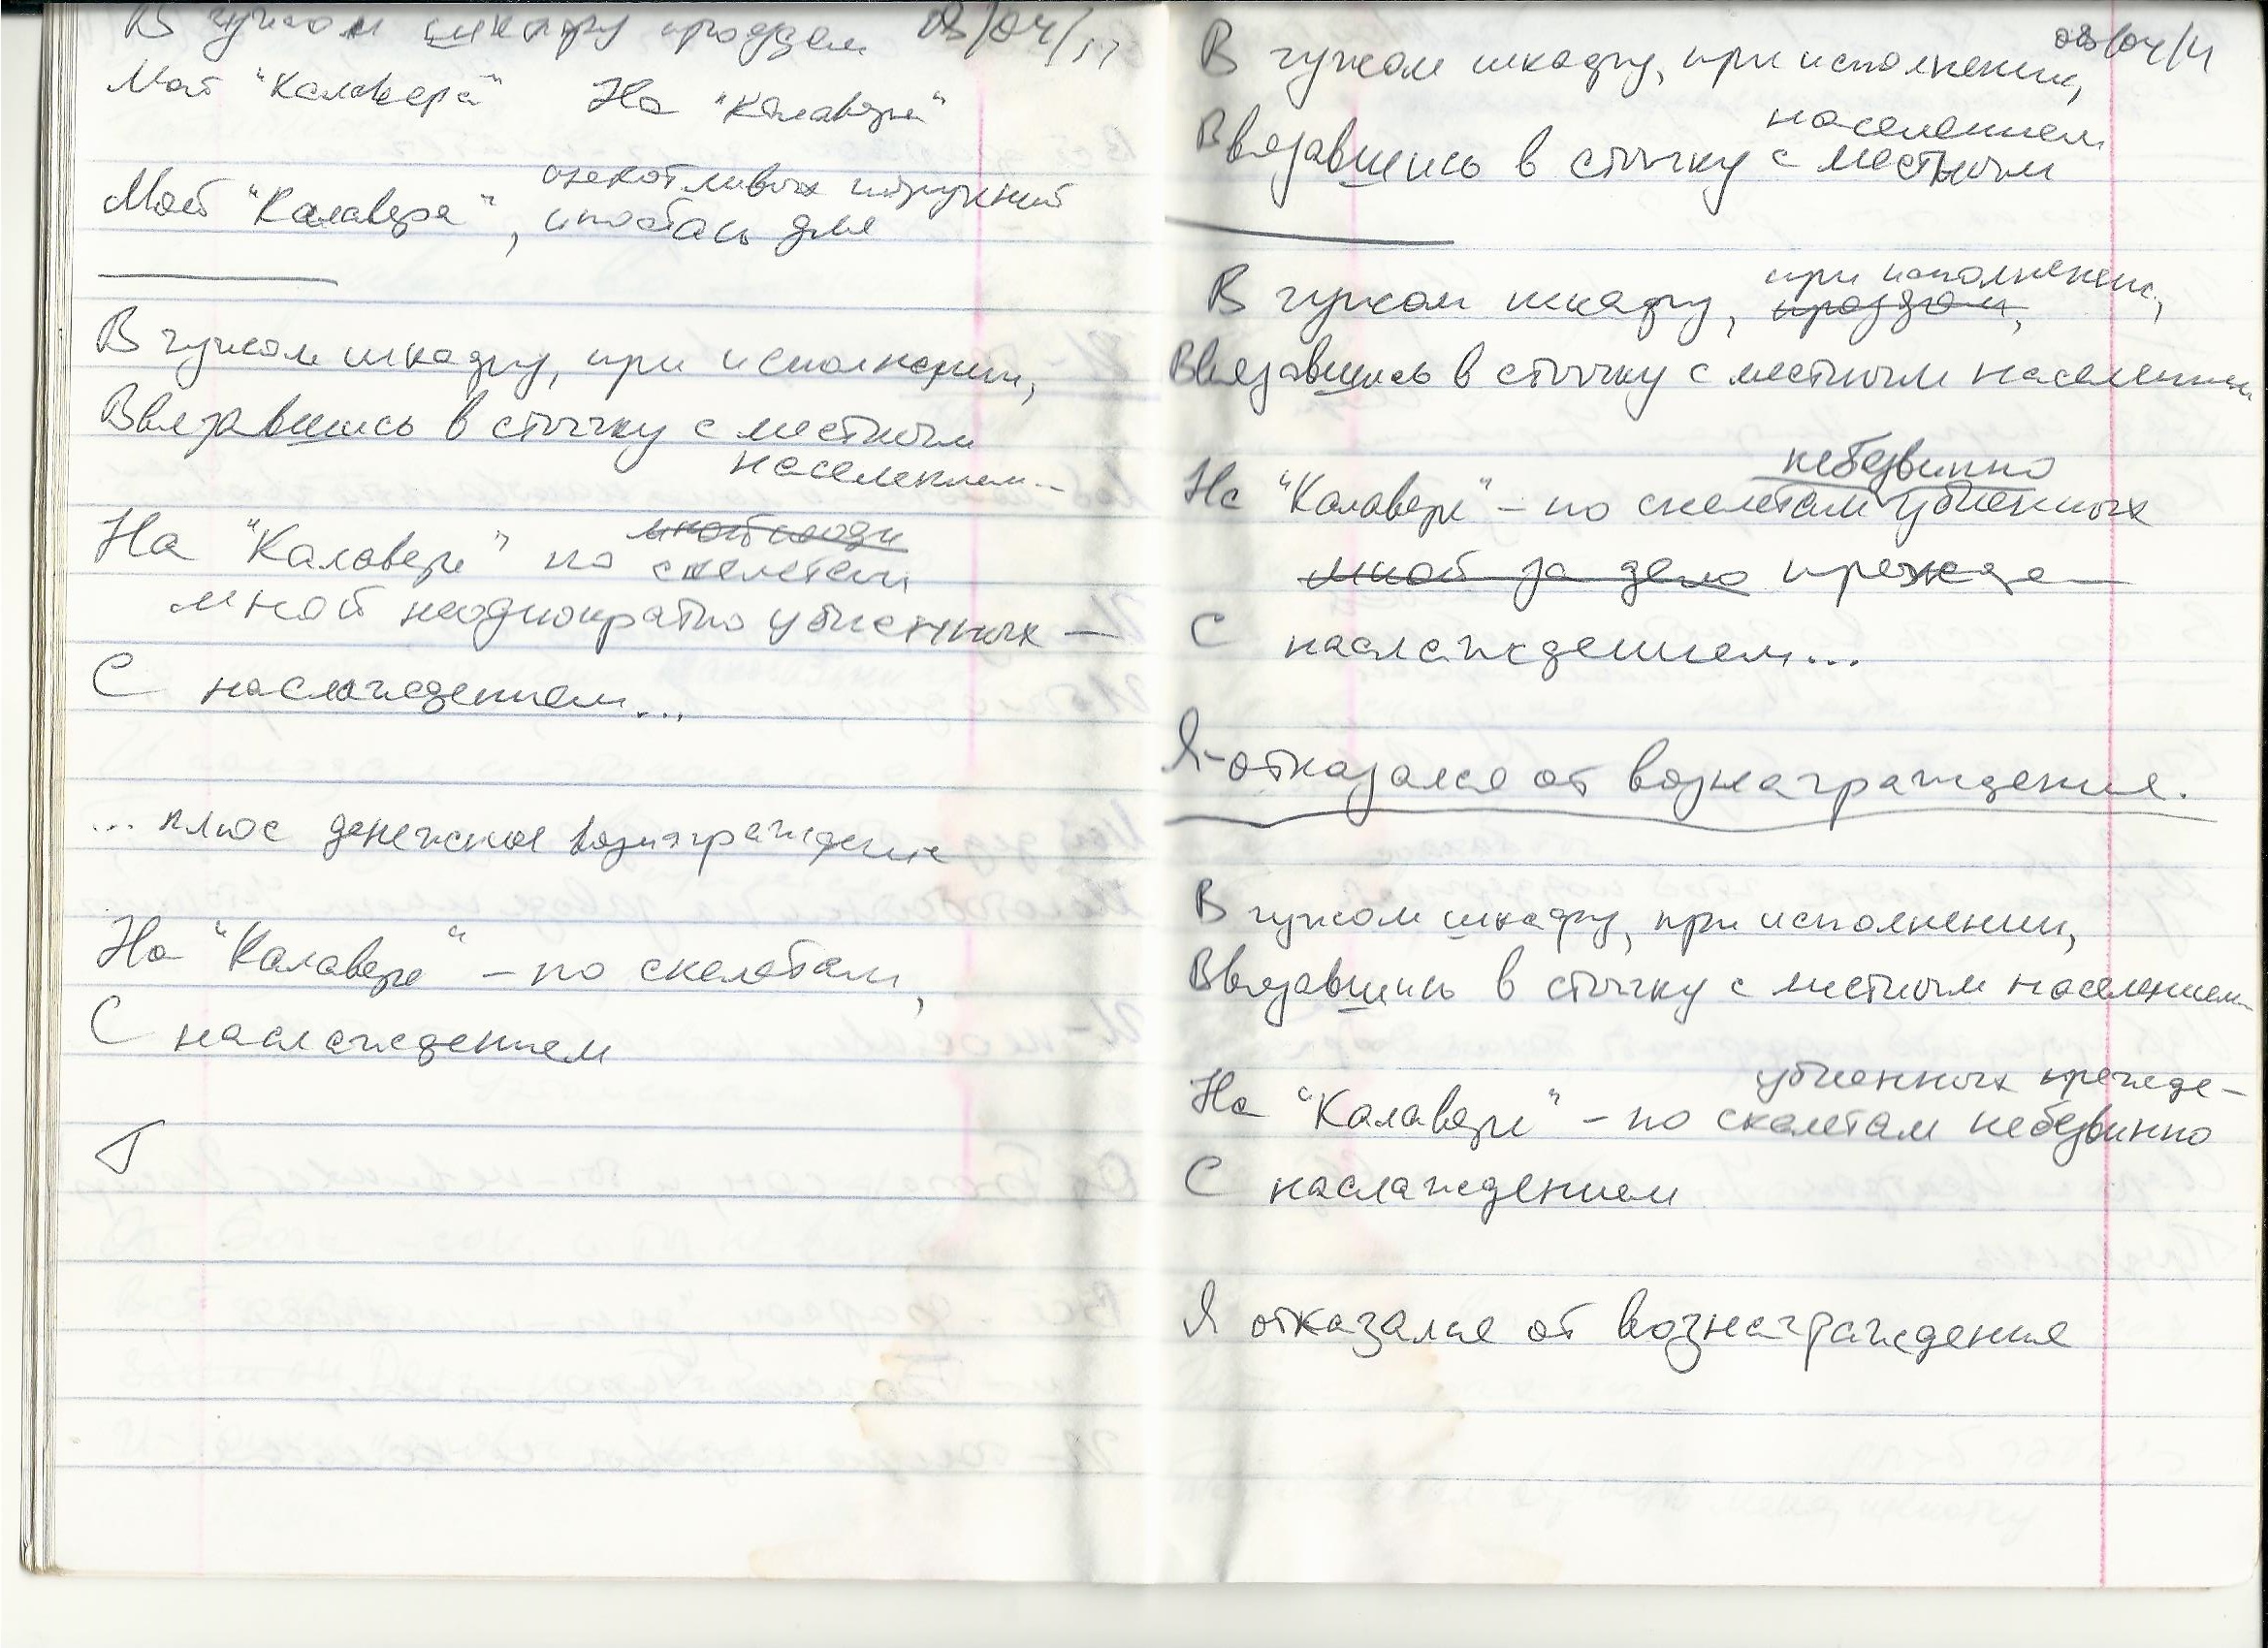 В чужом шкафу проездом 08/04/11
Мой "Калавера" На "Калавере"
щекотливых поручений
Мой "Калавера", ипостась для
В чужом шкафу, при исполнении,
Ввязавшись в стычку с местным
населением...
На "Калавере" по скелетам
мной неоднократно убиенных —
С наслаждением...
... плюс денежное вознаграждение
На "Калавере" – по скелетам,
С наслаждением
Г
08/04/11
В чужом шкафу, при исполнении,
населением
Ввязавшись в стычку с местным
при исполнении,
В чужом шкафу, проездом,
Ввязавшись в стычку с местным населением
небезвинно
На "Калавере" – по скелетам убиенных
мной за дело прежде —
С наслаждением...
Я отказался от вознаграждения.
В чужом шкафу, при исполнении,
Ввязавшись в стычку с местным населением
убиенных прежде –
На "Калавере" – по скелетам небезвинно
С наслаждением
Я отказался от вознаграждения